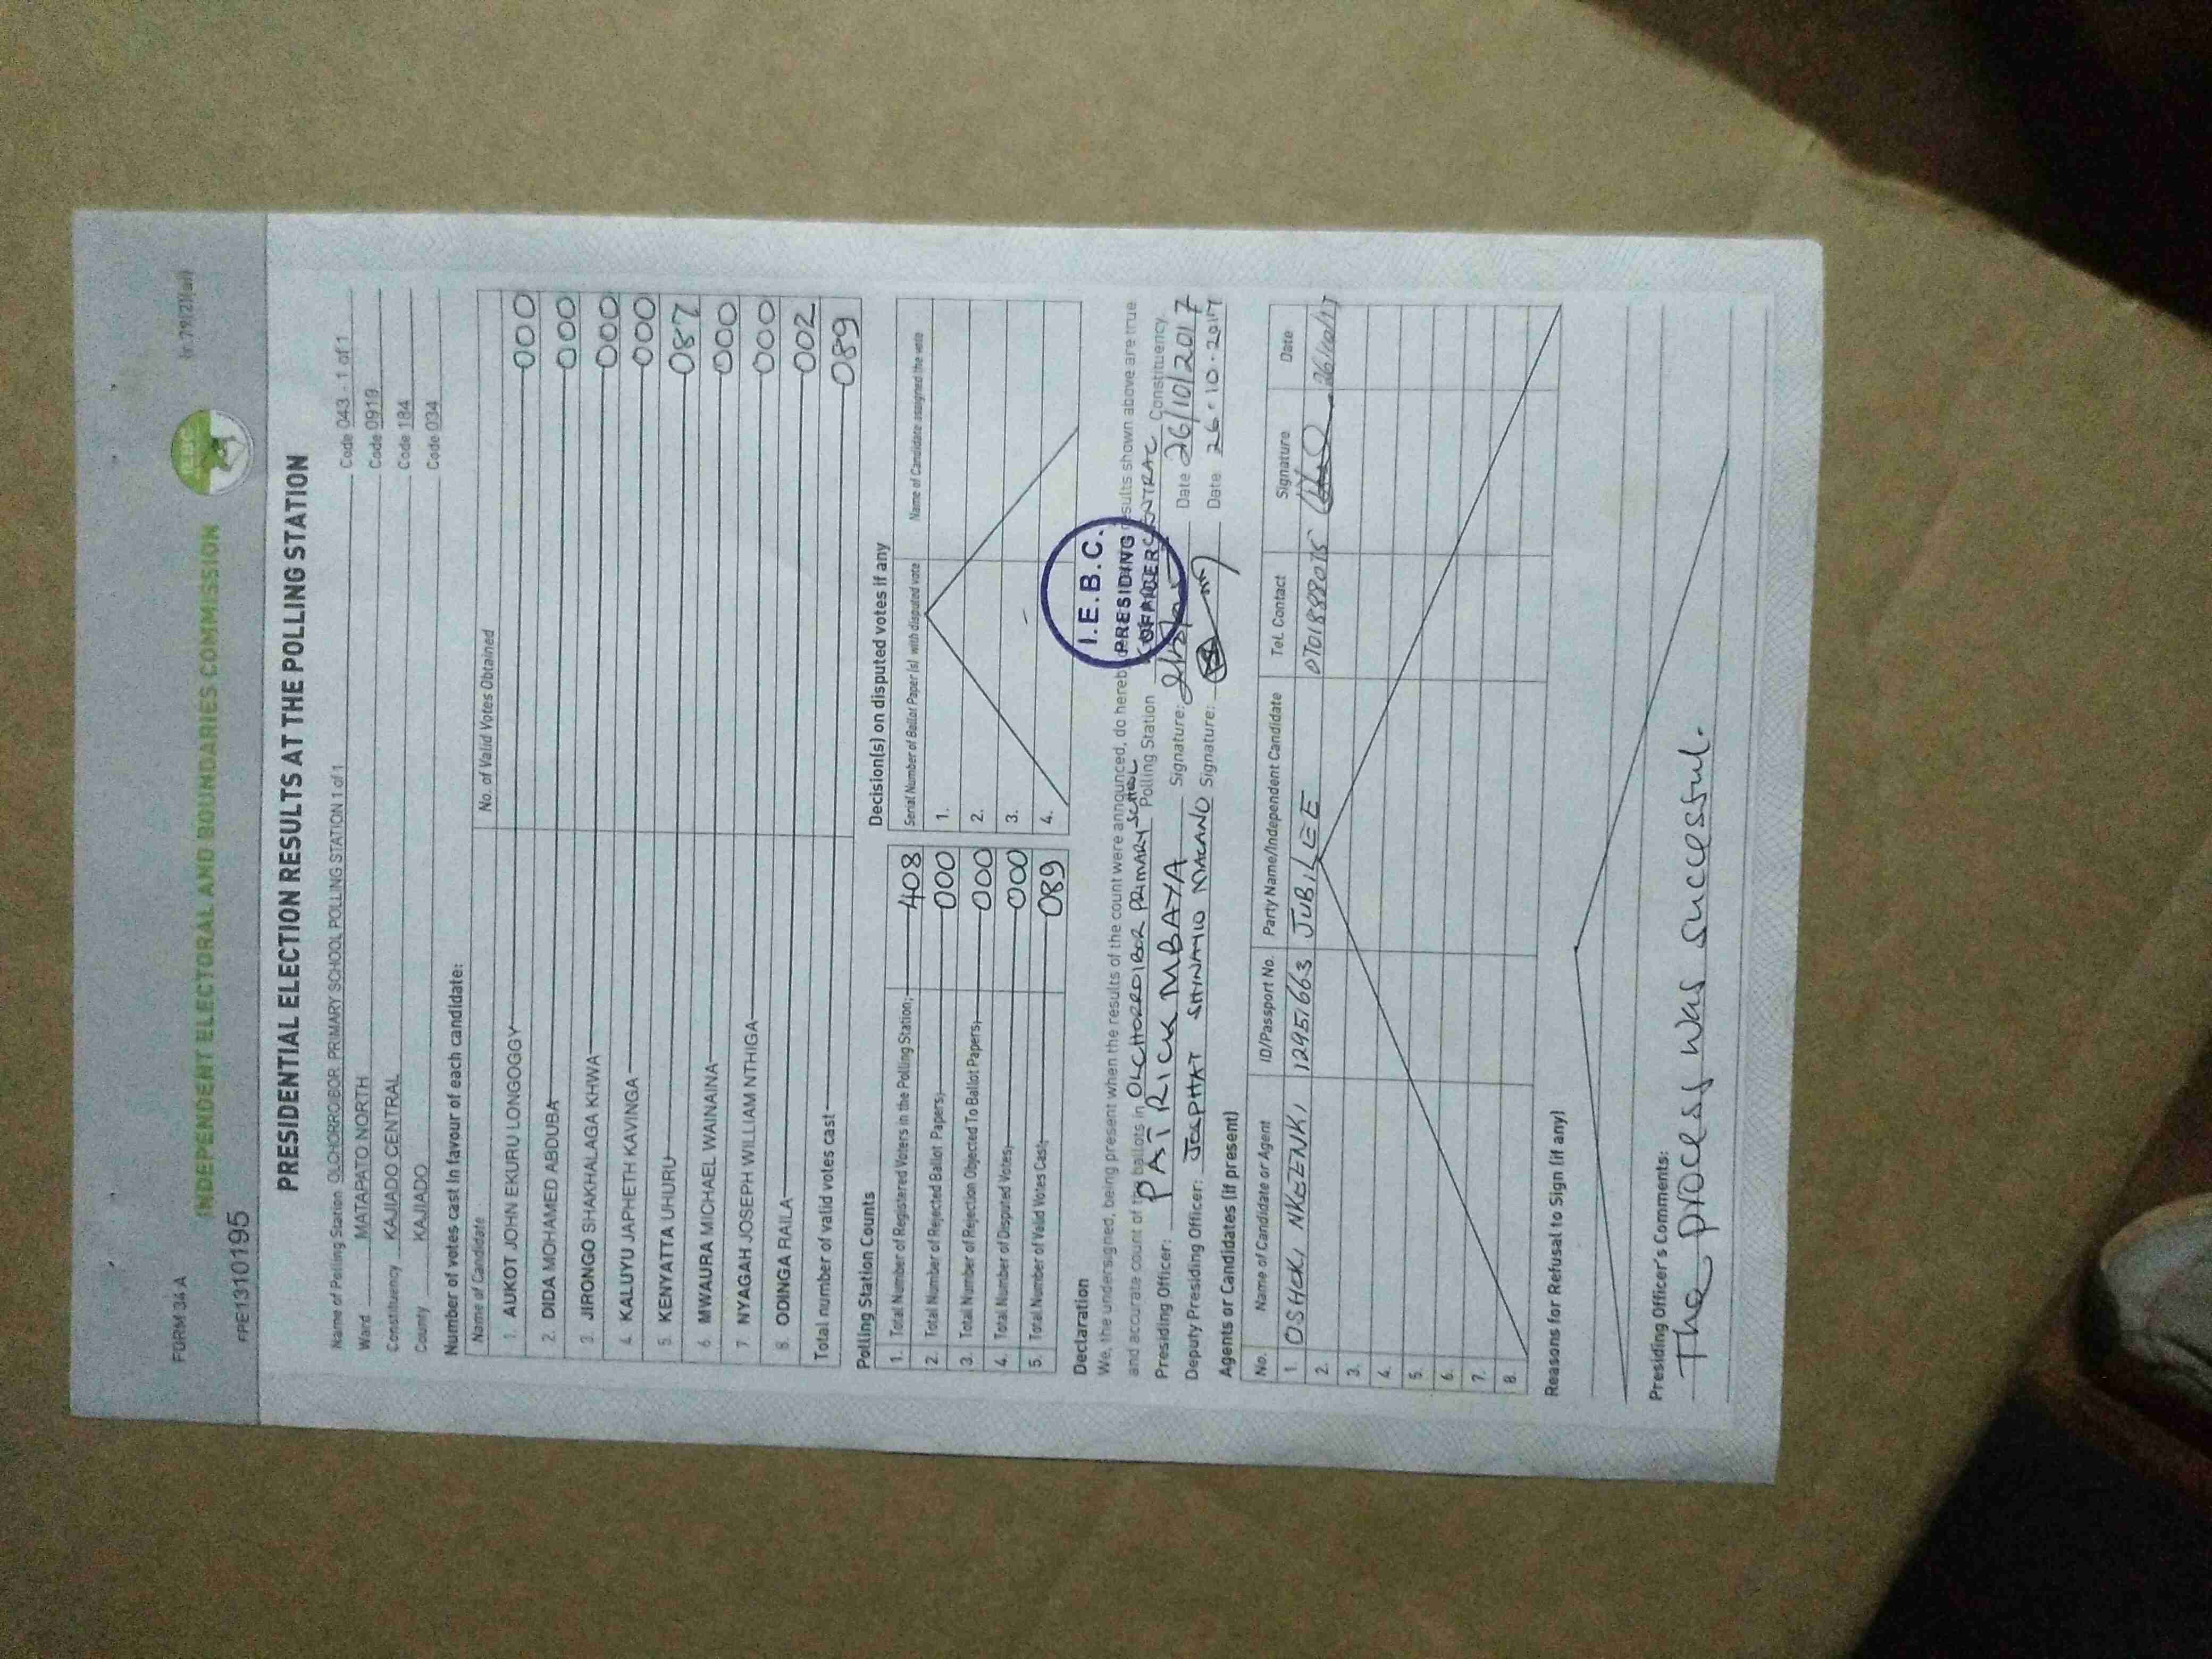 FORM 34 A
(r.79(2)(a))
INDEPENDENT ELECTORAL AND BOUNDARIES COMMISSION
IEBC
FPE1310195
PRESIDENTIAL ELECTION RESULTS AT THE POLLING STATION
Name of Polling Station OLCHORROIBOR PRIMARY SCHOOL POLLING STATION 1 of 1 Code 043 - 1 of 1
Ward MATAPATO NORTH Code 0919
Constituency KAJIADO CENTRAL Code 184
County KAJIADO Code 034
Number of votes cast in favour of each candidate:
Name of Candidate No. of Valid Votes Obtained
1. AUKOT JOHN EKURU LONGOGGY 000
2. DIDA MOHAMED ABDUBA 000
3. JIRONGO SHAKHALAGA KHWA 000
4. KALUYU JAPHETH KAVINGA 000
5. KENYATTA UHURU 087
6. MWAURA MICHAEL WAINAINA 000
7. NYAGAH JOSEPH WILLIAM NTHIGA 000
8. ODINGA RAILA 002
Total number of valid votes cast 089
Polling Station Counts
1. Total Number of Registered Voters in the Polling Station; 408
2. Total Number of Rejected Ballot Papers; 000
3. Total Number of Rejection Objected To Ballot Papers; 000
4. Total Number of Disputed Votes; 000
5. Total Number of Valid Votes Cast; 089
Decision(s) on disputed votes if any
Serial Number of Ballot Paper (s) with disputed vote Name of Candidate assigned the vote
1.
2.
3.
4.
I.E.B.C.
PRESIDING
OFFICER
Declaration
We, the undersigned, being present when the results of the count were announced, do hereby results shown above are true
and accurate count of the ballots in OLCHORROIBOR PRIMARY SCHOOL Polling Station Constituency.
Presiding Officer: PATRICK MBAYA Signature: Date 26/10/2017
Deputy Presiding Officer: JOSPHAT Signature: Date 26.10.2017
Agents or Candidates (if present)
No. Name of Candidate or Agent ID/Passport No. Party Name/Independent Candidate Tel. Contact Signature Date
1 OSHCKI NKEENKI 12951663 JUBILEE 0701888075 26/10/17
2.
3.
4.
5.
6.
7.
8.
Reasons for Refusal to Sign (if any)
Presiding Officer's Comments:
The process was successful.